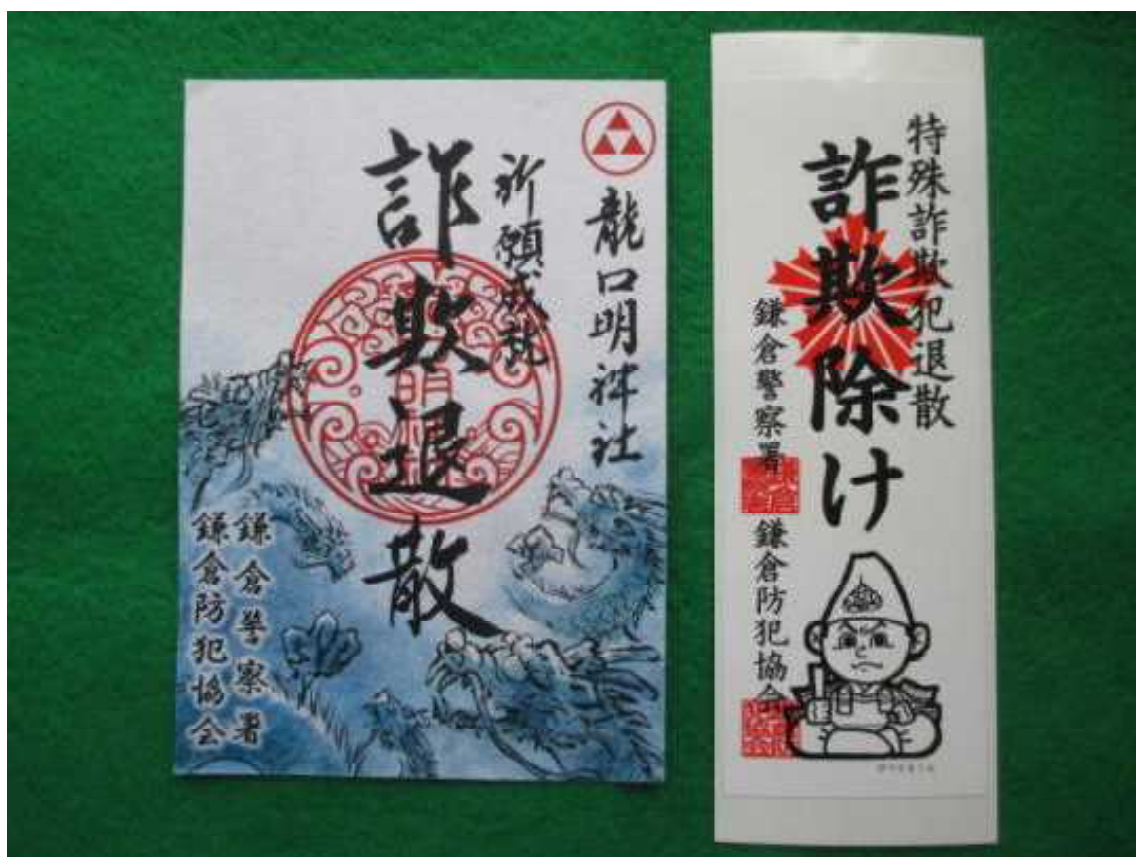 龍口明神社
祈願成就
詐欺退散
鎌倉警察署
鎌倉防犯協会
特殊詐欺犯退散
詐欺除け
鎌倉警察署
鎌倉防犯協会